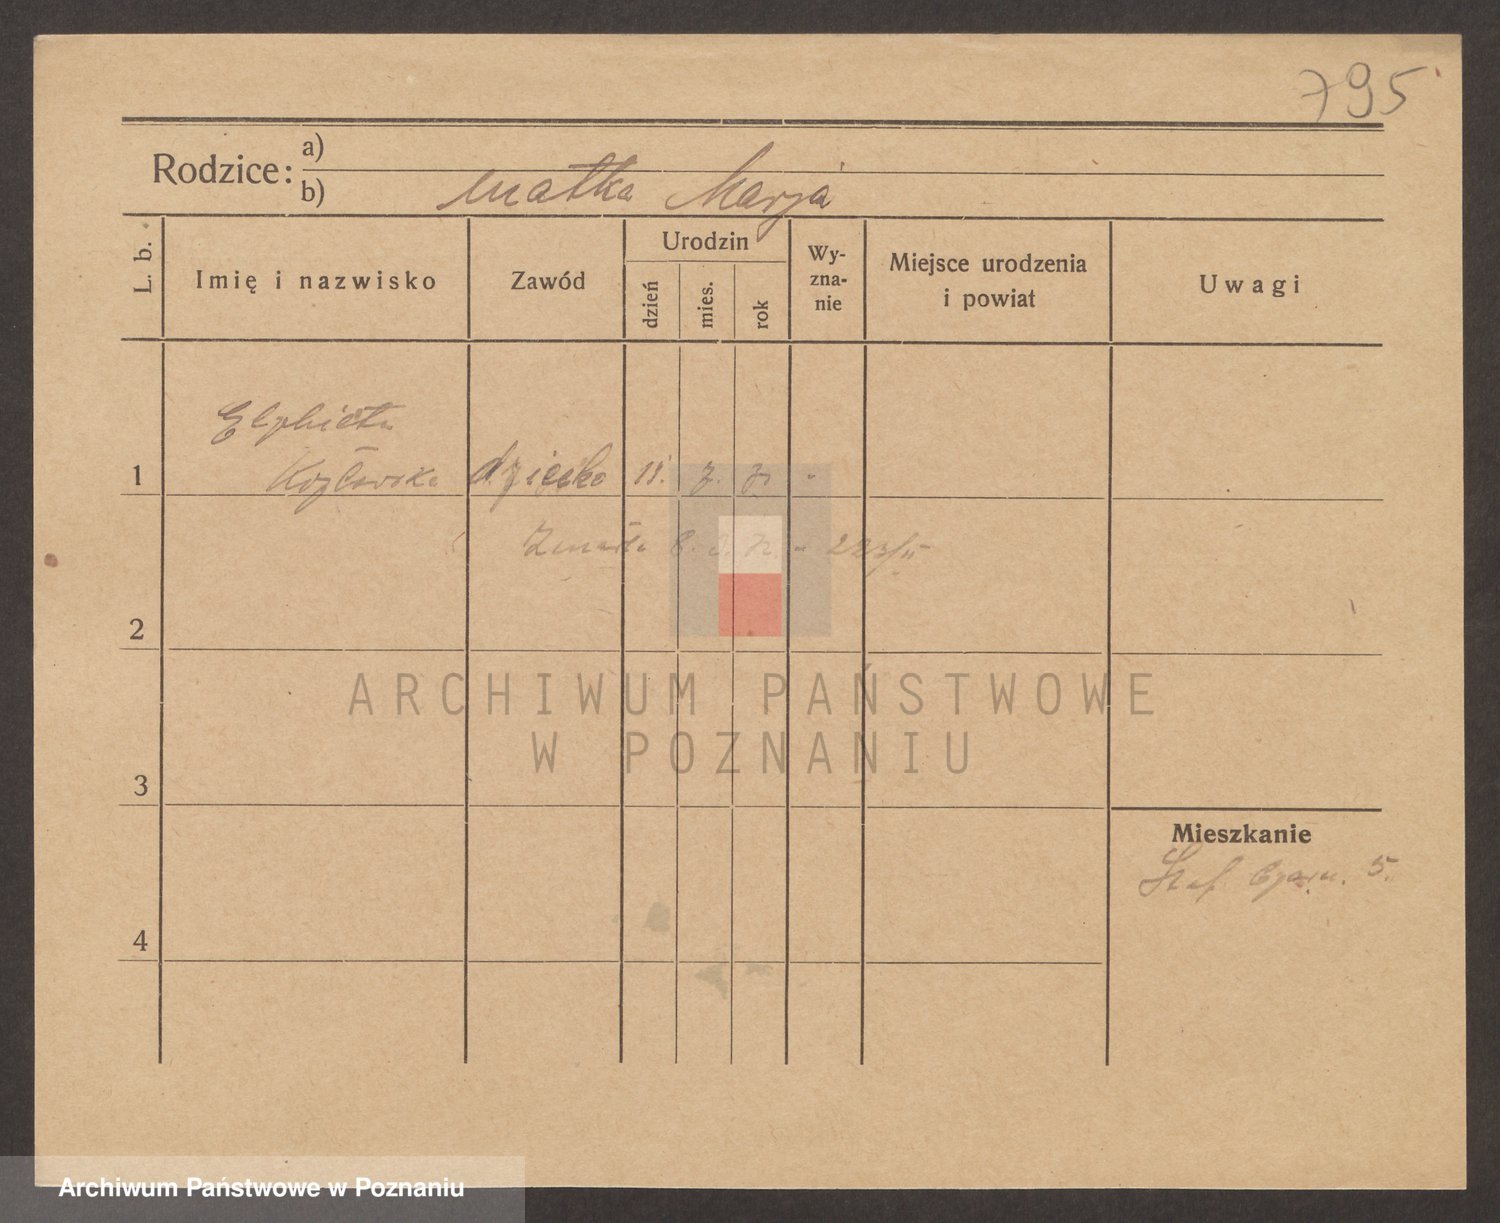 795
Rodzice: a)
b) matka Marja
L. b.
Imię i nazwisko
Zawód
Urodzin
dzień
mies.
rok
Wy-
zna-
nie
Miejsce urodzenia
i powiat
Uwagi
1
Elżbieta
Kozłowska dziecko 11. 7.
Zmarła 8.
2
3
4
Mieszkanie
5.
ARCHIWUM PAŃSTWOWE
W POZNANIU
Archiwum Państwowe w Poznaniu